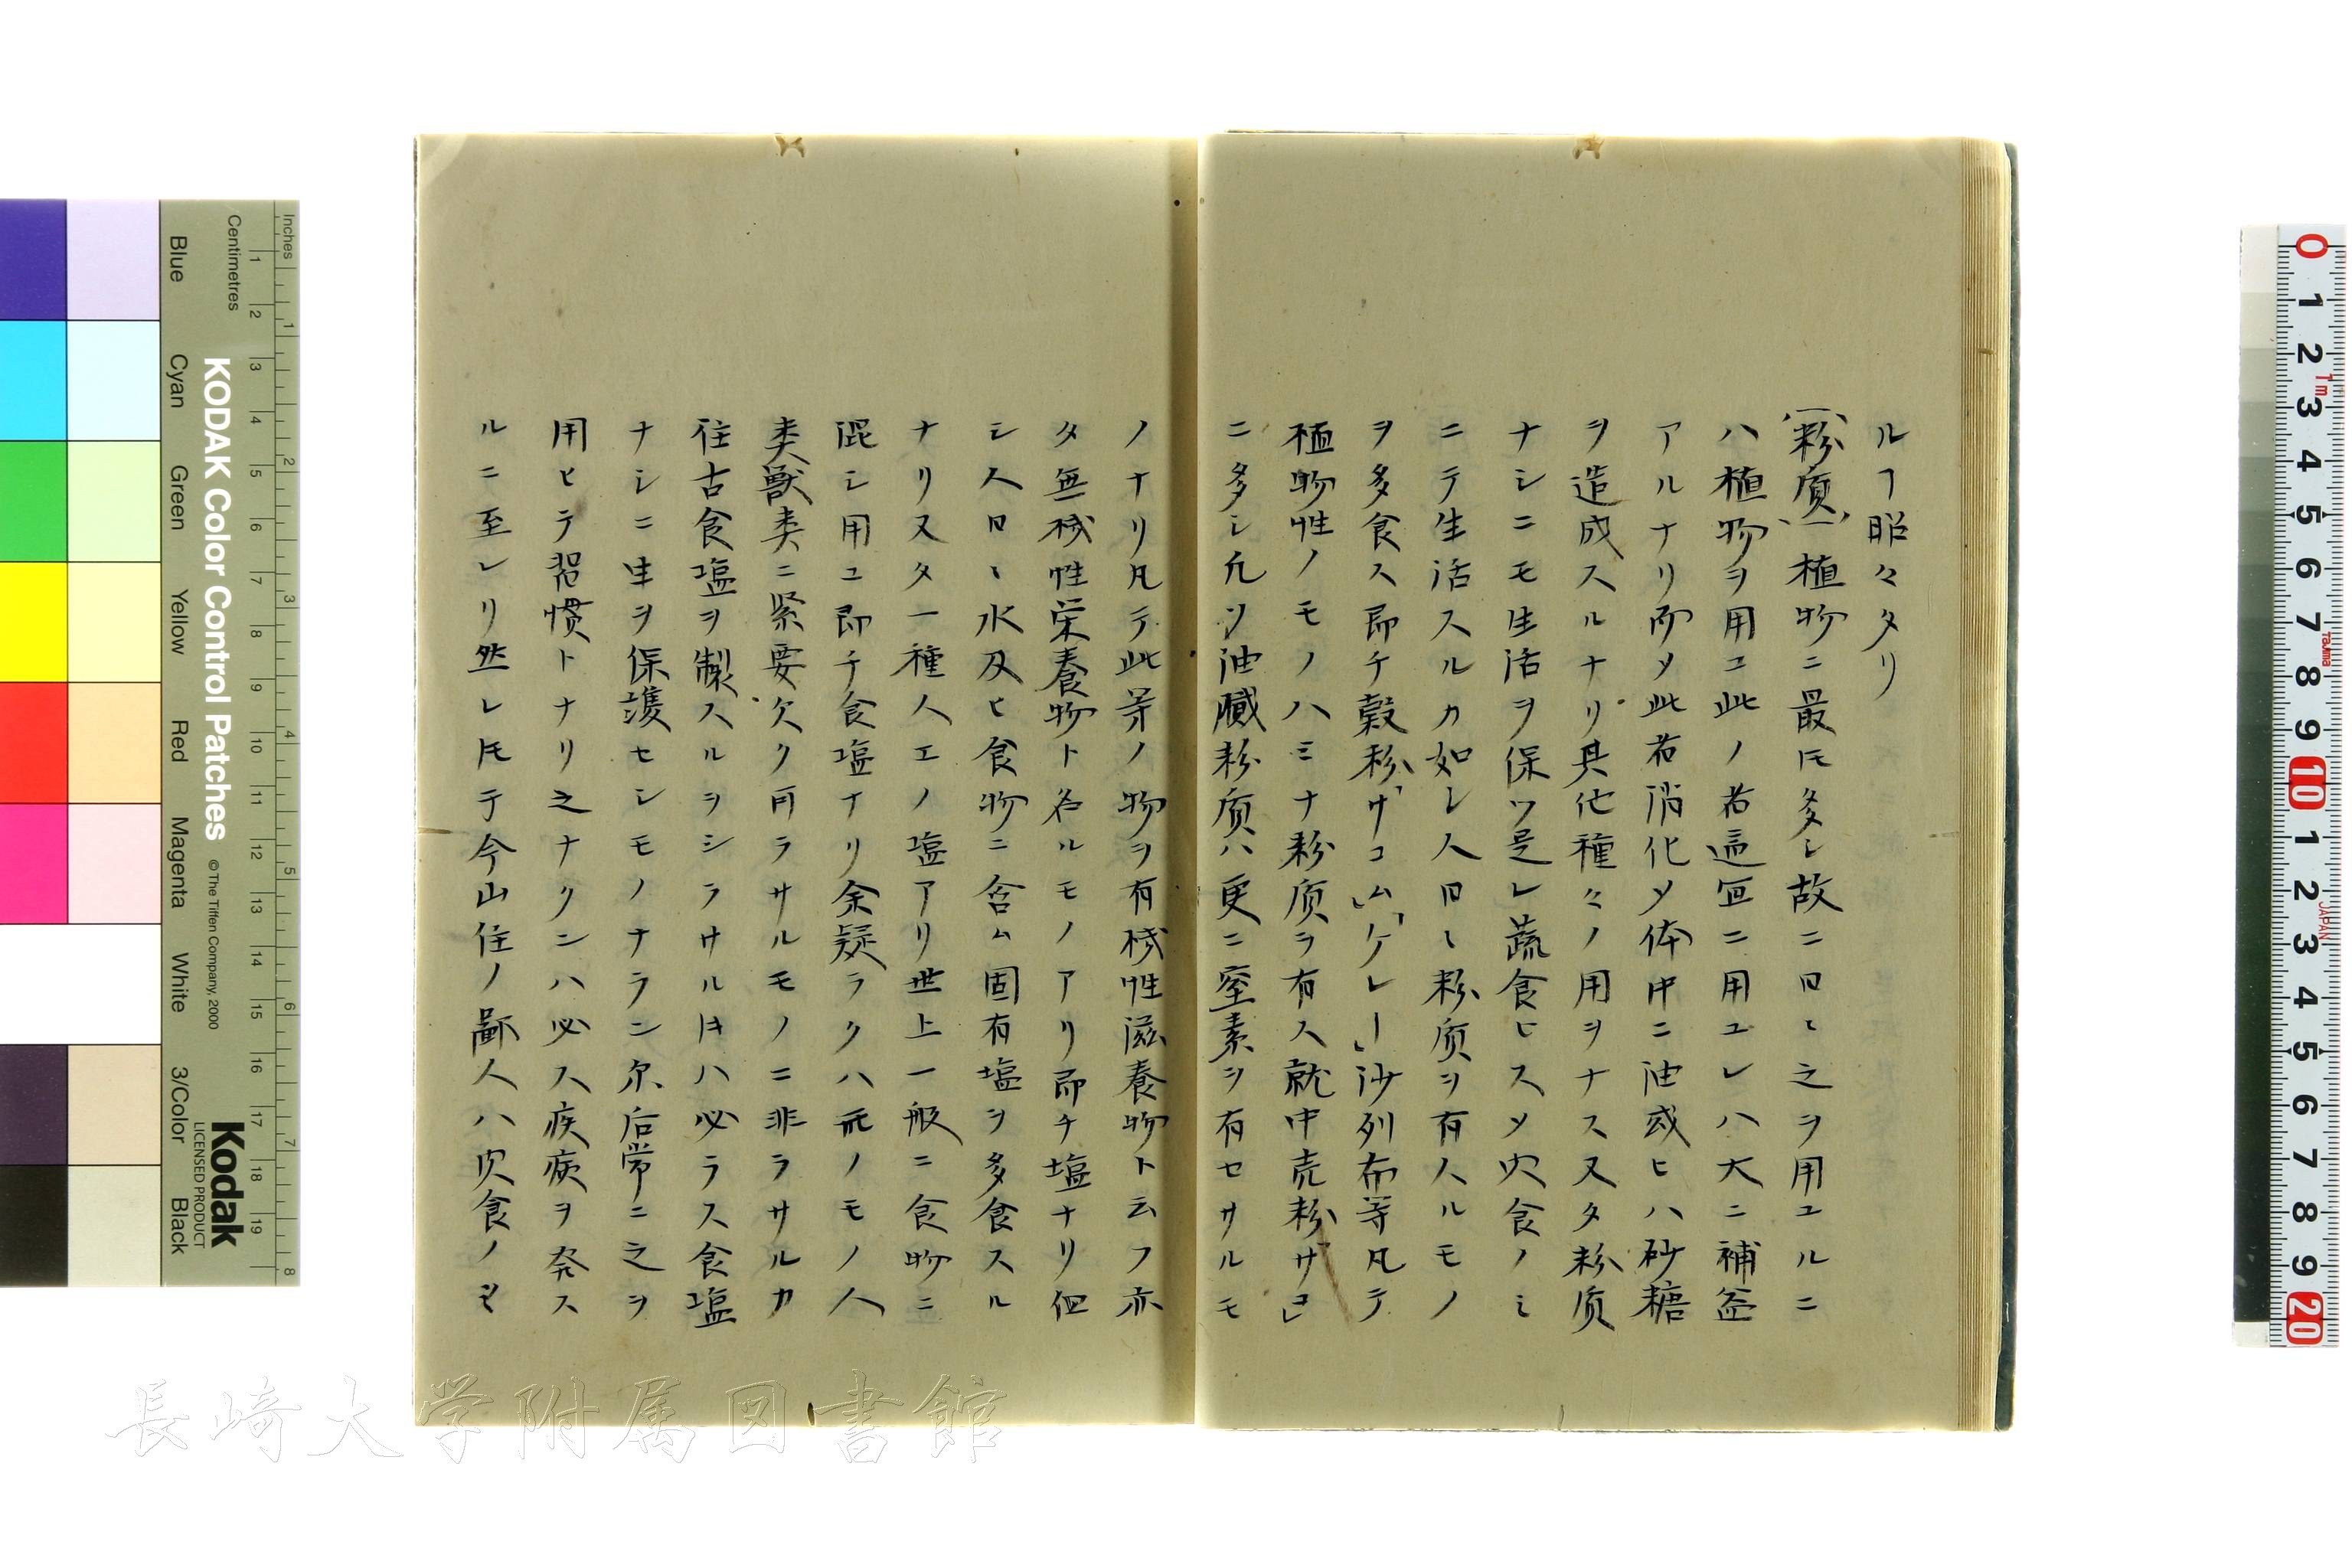 ルヿ昭々タリ
(粉質)植物ニ最モ多シ故ニ口ニ之ヲ用ユルニ
ハ植物ヲ用ユ此ノ者適宜ニ用ユレハ大ニ補益
アルナリ即メ此者消化メ体中ニ油或ヒハ砂糖
ヲ造成スルナリ其他種々ノ用ヲナス又タ粉質
ナシニモ生活ヲ保ツ是レ蔬食ヒスメ肉食ノミ
ニテ生活スルカ如シ人口ニ粉質ヲ有人ルモノ
ヲ多食ス即チ穀粉「サコム」「ケレー」沙列布等凡テ
植物性ノモノハミナ粉質ヲ有ス就中売粉「サコ」
ニ多シ凡ソ油膩粉質ハ更ニ窒素ヲ有セサルモ
ノナリ凡テ此等ノ物ヲ有機性滋養物ト云フ亦
タ無機性栄養物ト名ルモノアリ即チ塩ナリ但
シ人口ニ水及ヒ食物ニ含ム固有塩ヲ多食スル
ナリ又タ一種人エノ塩アリ世上一般ニ食物ニ
混シ用ユ即チ食塩ナリ余疑ラクハ此ノモノ人
類獣類ニ緊要欠ク可ラサルモノニ非ラサルカ
往古食塩ヲ製スルヲシラサル時ハ必ラス食塩
ナシニ生ヲ保護セシモノナラン尓后常ニ之ヲ
用ヒテ習慣トナリ之ナクンハ必ス疾病ヲ発ス
ルニ至レリ然レ𪜈テ今山住ノ鄙人ハ肉食ノミ
KODAK Color Control Patches
© The Tiffen Company, 2000
Kodak
LICENSED PRODUCT
Inches
Centimetres
Blue Cyan Green Yellow Red Magenta White 3/Color Black
長崎大学附属図書館